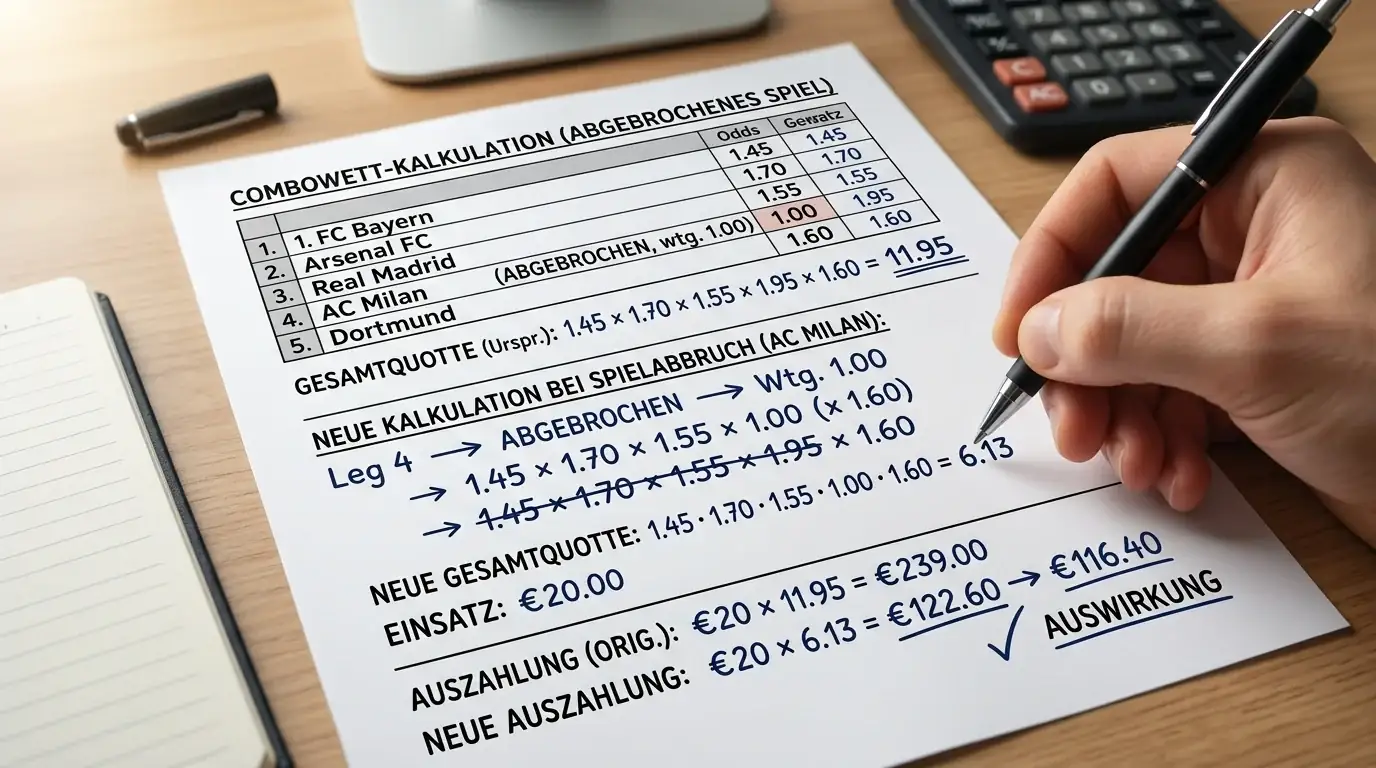 COMBOWETT-KALKULATION (ABGEBROCHENES SPIEL)
Odds Gewsatz
1. 1. FC Bayern 1.45 1.45
2. Arsenal FC 1.70 1.70
3. Real Madrid 1.55 1.55
4. AC Milan (ABGEBROCHEN, wtg. 1.00) 1.00 1.95
5. Dortmund 1.60 1.60
GESAMTQUOTTE (Urspr.): 1.45 × 1.70 × 1.55 × 1.95 × 1.60 = 11.95
NEUE KALKULATION BEI SPIELABBRUCH (AC MILAN):
Leg 4 → ABGEBROCHEN → Wtg. 1.00
→ 1.45 × 1.70 × 1.55 × 1.00 (× 1.60)
→ 1.45 × 1.70 × 1.55 × 1.95 × 1.60
NEUE GESAMTQUOTTE: 1.45 · 1.70 · 1.55 · 1.00 · 1.60 = 6.13
EINSATZ: €20.00
AUSZAHLUNG (ORIG.): €20 × 11.95 = €239.00
NEUE AUSZAHLUNG: €20 × 6.13 = €122.60 → €116.40
✓ AUSWIRKUNG